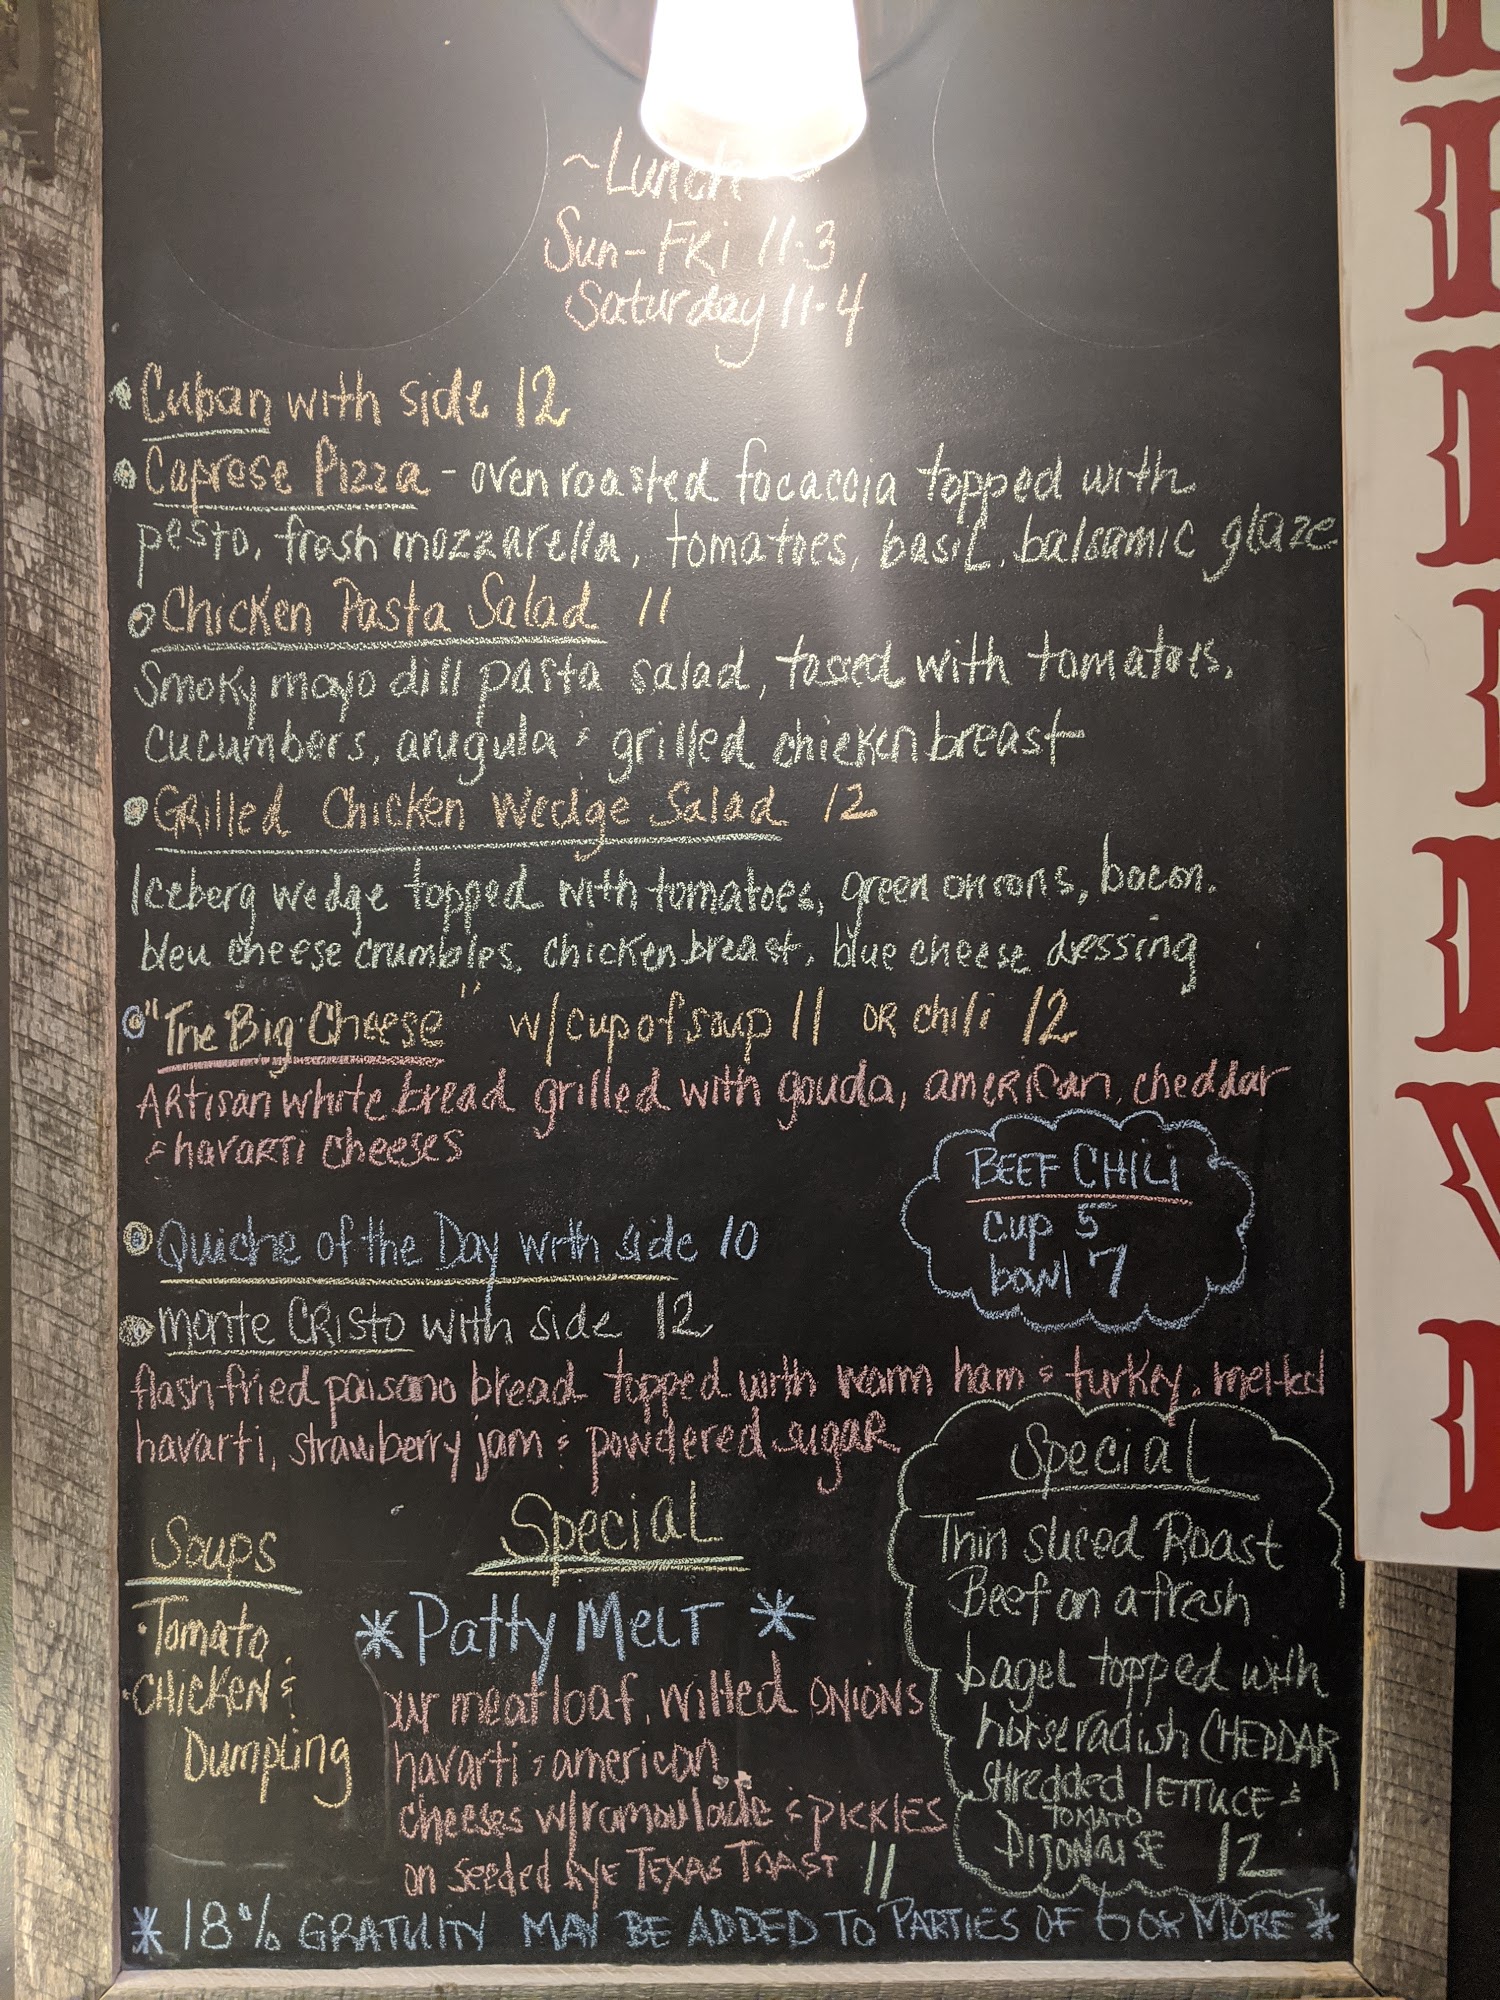 ~Lunch~
Sun-Fri 11-3
Saturday 11-4
Cuban with side 12
Caprese Pizza - oven roasted focaccia topped with
pesto, fresh mozzarella, tomatoes, basil, balsamic glaze
Chicken Pasta Salad 11
Smoky mayo dill pasta salad, tossed with tomatoes,
cucumbers, arugula & grilled chicken breast
Grilled Chicken Wedge Salad 12
Iceberg wedge topped with tomatoes, green onions, bacon,
bleu cheese crumbles, chicken breast, blue cheese dressing
"The Big Cheese" w/cup of soup 11 OR chili 12
Artisan white bread grilled with gouda, american, cheddar
& havarti cheeses
BEEF CHILI
cup 5
bowl 7
Quiche of the Day with side 10
Monte Cristo with side 12
flash fried paisano bread topped with warm ham & turkey, melted
havarti, strawberry jam & powdered sugar
Soups
Tomato
CHICKEN &
Dumpling
Special
* Patty Melt *
our meatloaf, wilted ONIONS
havarti & american
cheeses w/ramoulade & PICKLES
on seeded Rye TEXAS TOAST 11
Special
Thin sliced Roast
Beef on a fresh
bagel topped with
horseradish CHEDDAR
shredded LETTUCE &
TOMATO
DIJONAISE 12
* 18% GRATUITY MAY BE ADDED TO PARTIES OF 6 OR MORE *